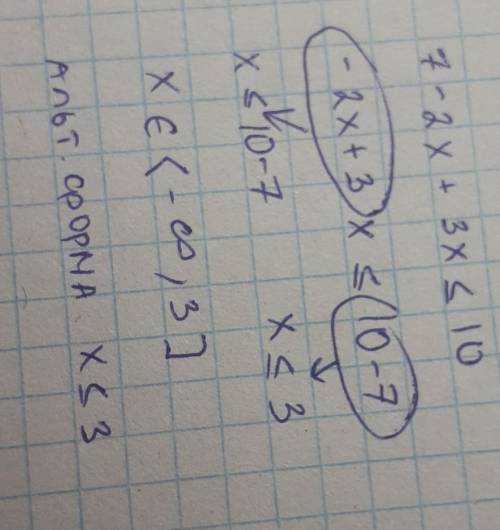 7 - 2x + 3x ≤ 10
- 2x + 3x ≤ 10 - 7
x ≤ 10 - 7 x ≤ 3
x ∈ < - ∞ , 3 ]
Альт. форма x ≤ 3